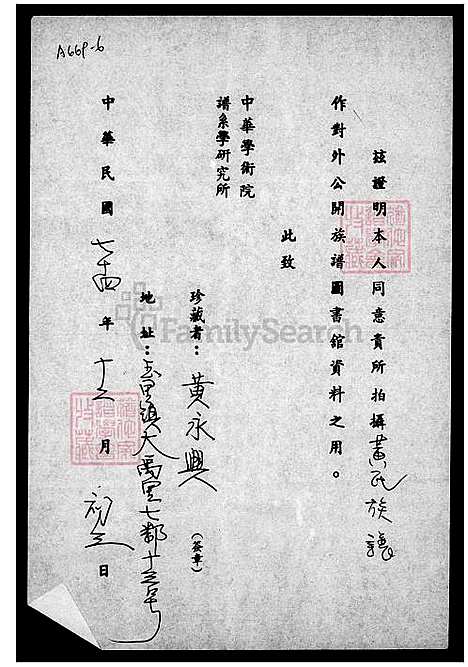 A669-6
茲證明本人同意貴所拍攝黃氏族譜
作對外公開族譜圖書館資料之用。
此致
中華學術院
譜系學研究所
珍藏者：黃永興（簽章）
地址：玉里鎮大禹里七鄰十三号
中華民國七十四年十二月初三日
FamilySearch